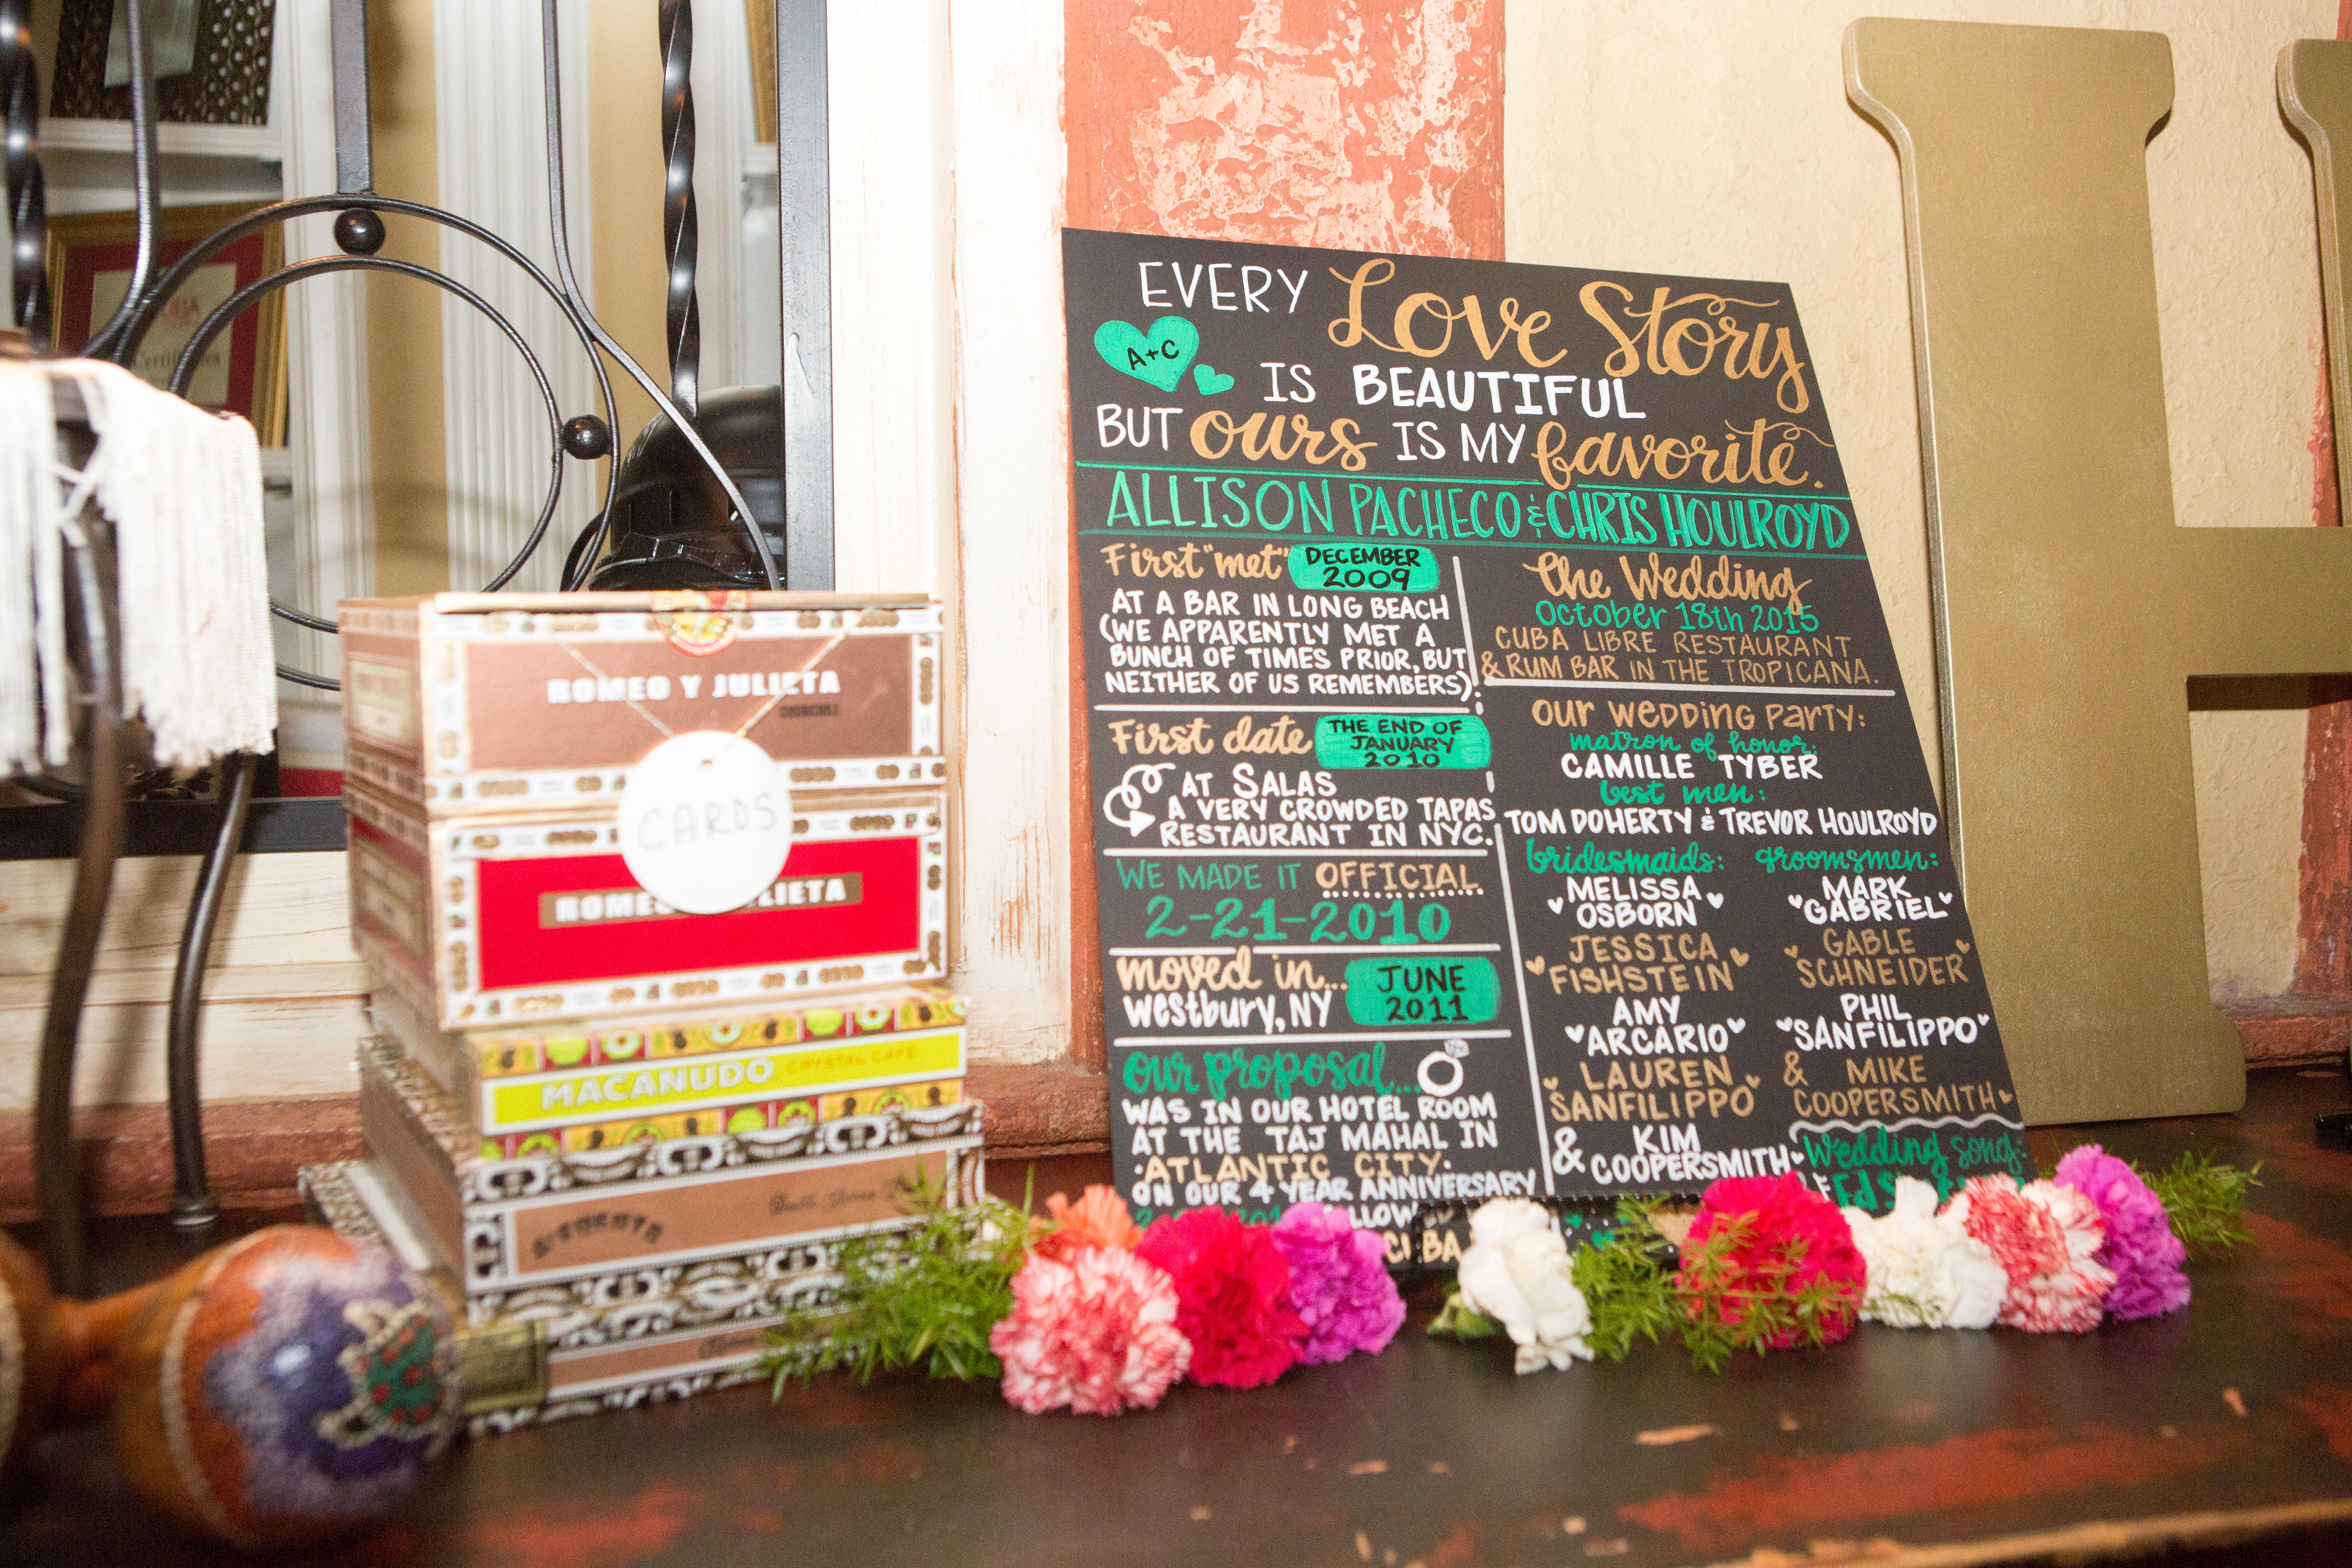 EVERY Love Story
A+C
IS BEAUTIFUL
BUT ours IS MY favorite.
ALLISON PACHECO & CHRIS HOULROYD
First "met" DECEMBER 2009
AT A BAR IN LONG BEACH
(WE APPARENTLY MET A
BUNCH OF TIMES PRIOR, BUT
NEITHER OF US REMEMBERS).
First date THE END OF
JANUARY
2010
AT SALAS
A VERY CROWDED TAPAS
RESTAURANT IN NYC.
WE MADE IT OFFICIAL
2-21-2010
moved in...
Westbury, NY
JUNE
2011
our proposal...
WAS IN OUR HOTEL ROOM
AT THE TAJ MAHAL IN
·ATLANTIC CITY·
ON OUR 4 YEAR ANNIVERSARY
The Wedding
October 18th 2015
CUBA LIBRE RESTAURANT
& RUM BAR IN THE TROPICANA.
OUR WEDDING PARTY:
matron of honor:
CAMILLE TYBER
best men:
TOM DOHERTY & TREVOR HOULROYD
bridesmaids:
MELISSA
OSBORN
JESSICA
FISHSTEIN
AMY
ARCARIO
LAUREN
SANFILIPPO
& KIM
COOPERSMITH
groomsmen:
MARK
GABRIEL
GABLE
SCHNEIDER
PHIL
SANFILIPPO
& MIKE
COOPERSMITH
Wedding song:
ROMEO Y JULIETA
CHURCHILL
CARDS
ROMEO
MACANUDO CRYSTAL CAFE